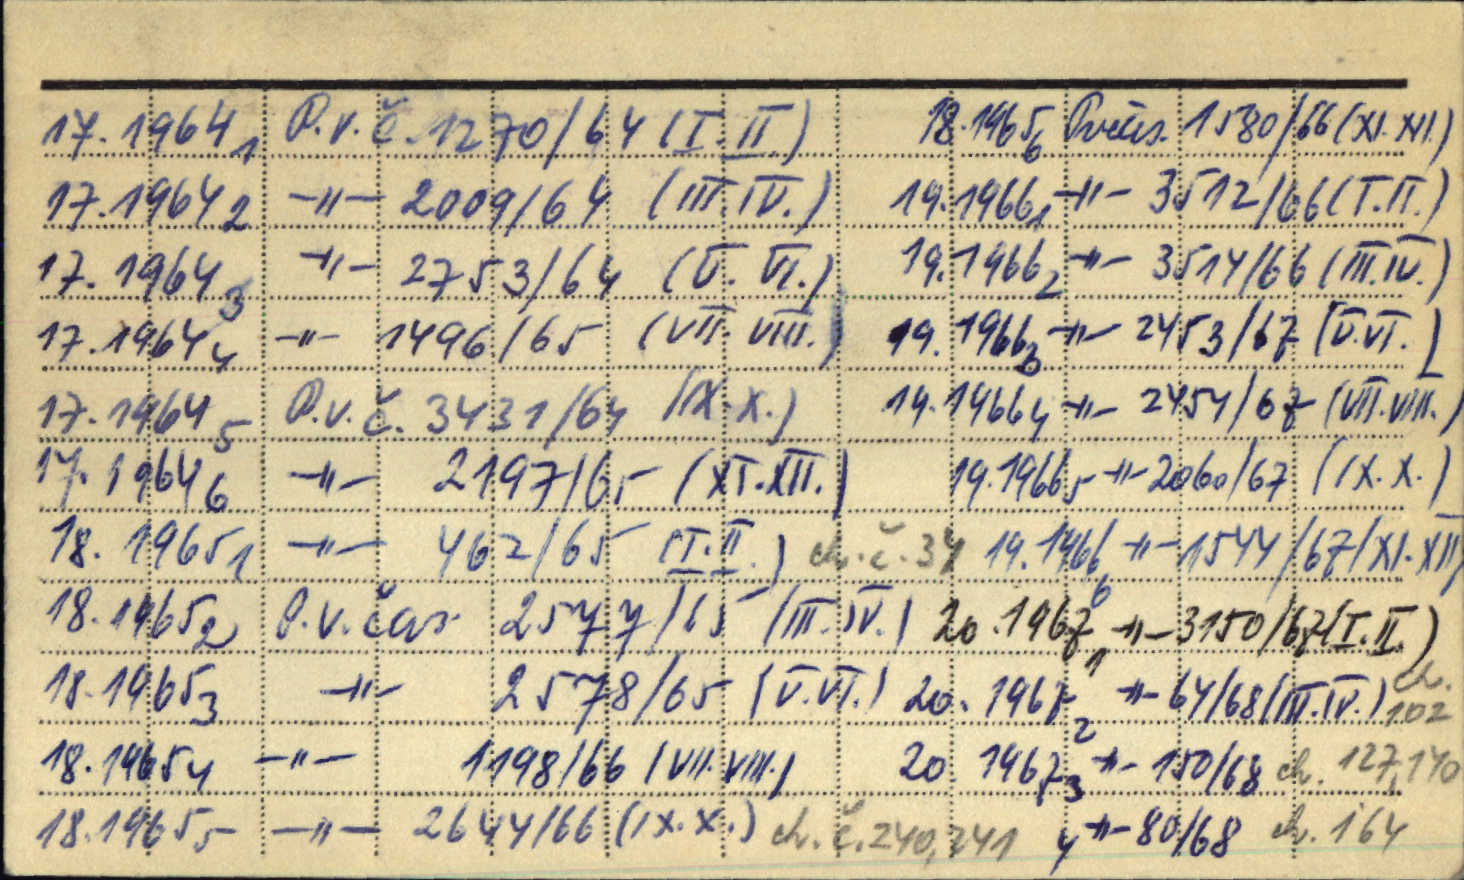 17. 1964₁ P.v.č. 1270/64 (I. II)
17. 1964₂ -"- 2009/64 (III. IV.)
17. 1964₃ -"- 2753/64 (V. VI.)
17. 1964₄ -"- 1496/65 (VII. VIII.)
17. 1964₅ P.v.č. 3431/64 (IX. X.)
17. 1964₆ -"- 2197/65 (XI. XII.)
18. 1965₁ -"- 462/65 (I. II.) ch. č. 34
18. 1965₂ P.v. čas 2577/65 (III. IV.)
18. 1965₃ -"- 2578/65 (V. VI.)
18. 1965₄ -"- 1198/66 (VII. VIII.)
18. 1965₅ -"- 2644/66 (IX. X.) ch. č. 240, 241
18. 1965₆ Pvčas. 1580/66 (XI. XII.)
19. 1966₁ -"- 3512/66 (I. II.)
19. 1966₂ -"- 3514/66 (III. IV.)
19. 1966₃ -"- 2453/67 (V. VI.)
19. 1966₄ -"- 2454/67 (VII. VIII.)
19. 1966₅ -"- 2060/67 (IX. X.)
19. 1966₆ -"- 1544/67 (XI. XII)
20. 1967₁ -"- 3150/67 (I. II.)
20. 1967₂ -"- 64/68 (III. IV.) ch. 102
20 1967₃ -"- 150/68 ch. 127, 140
4 -"- 80/68 ch. 164